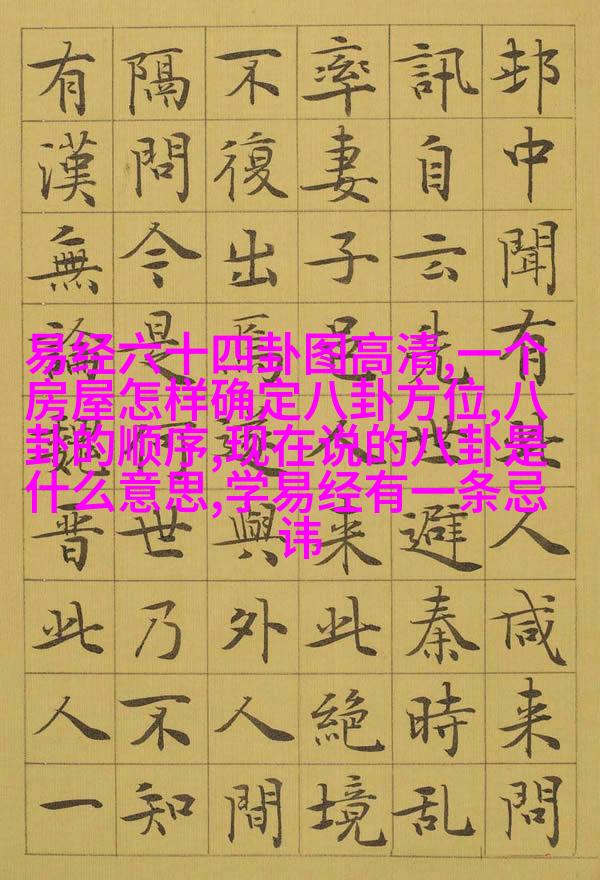 邨中聞有此人咸来問
訊自云先世避秦時乱
率妻子邑人来此絶境
不復出焉遂與外人間
隔問今是何世乃不知
有漢無論魏晋此人一
易经六十四卦图高清,一个
房屋怎样确定八卦方位,八
卦的顺序,现在说的八卦是
什么意思,学易经有一条忌
讳